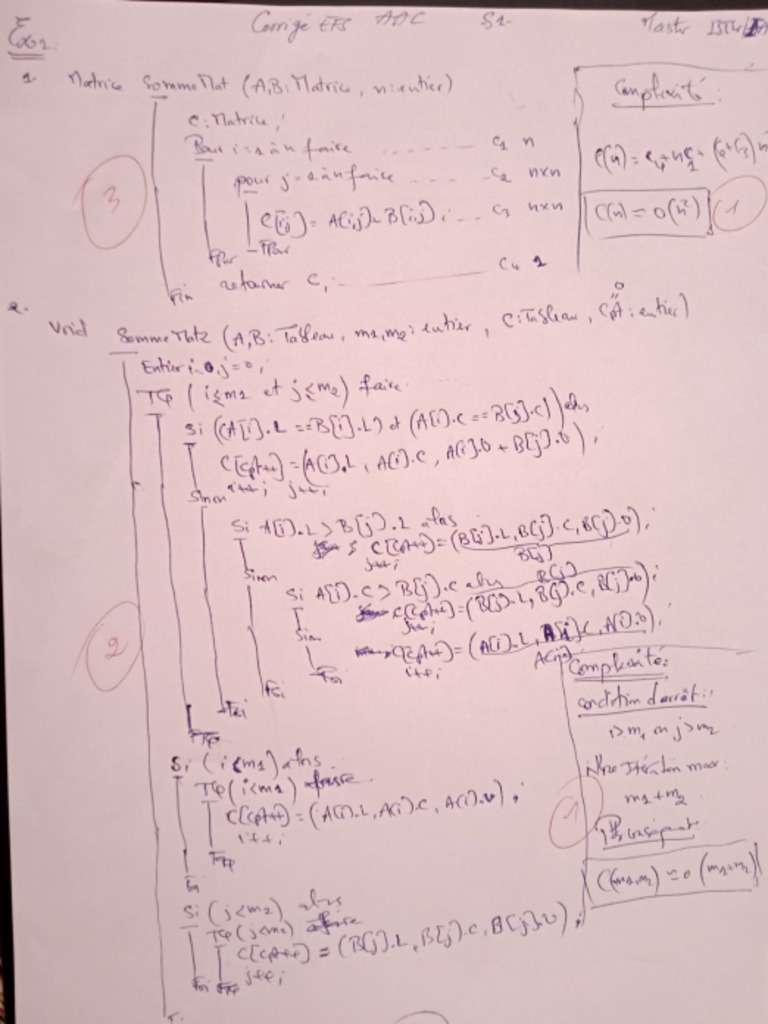 Corrigé EFS AAC S1
Master
Exo1.
1- Matrice SommeMat (A,B: Matrice, n: entier)
C: Matrice;
Pour i=1 à n faire ........ C1 n
pour j=1 à n faire .... C2 n×n
C[i,j] = A[i,j] + B[i,j]; .. C3 n×n
FPour
FPour
retourner C; C4 1
Fin
3
Complexité:
C(n) = C4 + nC1 + (C2+C3) n²
C(n) = O(n²)
1
2-
Void SommeMat2 (A,B: Tableau, m1,m2: entier, C: Tableau, cpt=0: entier)
Entier i=0, j=0;
TQ (i≤m1 et j≤m2) faire
Si ((A[i].L == B[i].L) et (A[i].C == B[j].C)) alors
C[cpt++] = (A[i].L, A[i].C, A[i].v + B[j].v);
i++; j++;
Sinon
Si A[i].L > B[j].L alors
C[cpt++] = (B[j].L, B[j].C, B[j].v);
B[j]
j++;
Sinon
Si A[i].C > B[j].C alors
B[j]
C[cpt++] = (B[j].L, B[j].C, B[j].v);
j++;
Sinon
C[cpt++] = (A[i].L, A[i].C, A[i].v);
i++;
Fsi
Fsi
Fsi
FTQ
2
Si (i<m1) alors
TQ (i<m1) faire
C[cpt++] = (A[i].L, A[i].C, A[i].v);
i++;
FTQ
Fsi
Si (j<m2) alors
TQ (j<m2) faire
C[cpt++] = (B[j].L, B[j].C, B[j].v);
j++;
Fsi FTQ
Complexité:
condition d'arrêt:
i>m1 ou j>m2
Nbre Itération max
m1+m2
Par conséquent
C(m1,m2) = O(m1+m2)
1